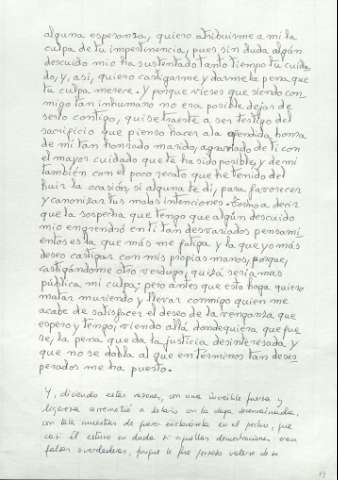 alguna esperanza, quiero atribuirme a mi la
culpa de tu impertinencia, pues sin duda algún
descuido mio ha sustentado tanto tiempo tu cuida-
do, y, asi, quiero castigarme y darme la pena que
tu culpa merece. Y porque vieses que siendo con-
migo tan inhumano no era posible dejar de
serlo contigo, quise traerte a ser testigo del
sacrificio que pienso hacer a la ofendida honra
de mi tan honrado marido, agraviado de ti con
el mayor cuidado que te ha sido posible, y de mi
también con el poco recato que he tenido del
huir la ocasión, si alguna te di, para favorecer
y canonizar tus malas intenciones. Torno a decir
que la sospecha que tengo que algún descuido
mio engendró en ti tan desvariados pensami
entos es la que más me fatiga y la que yo más
deseo castigar con mis propias manos, porque,
castigándome otro verdugo, quizá seria mas
pública mi culpa; pero antes que esto haga quiero
matar muriendo y llevar conmigo quien me
acabe de satisfacer el deseo de la venganza que
espero y tengo, viendo allá dondequiera que fue
re, la pena que da la justicia desinteresada y
que no se dobla al que en términos tan deses
perados me ha puesto.
Y, diciendo estas razones, con una increible fuerza y
ligereza arremetió a Lotario con la daga desenvainada,
con tales muestras de querer enclavársela en el pecho, que
casi él estuvo en duda si aquellas demostraciones eran
falsas o verdaderas, porque le fue forzoso valerse de su